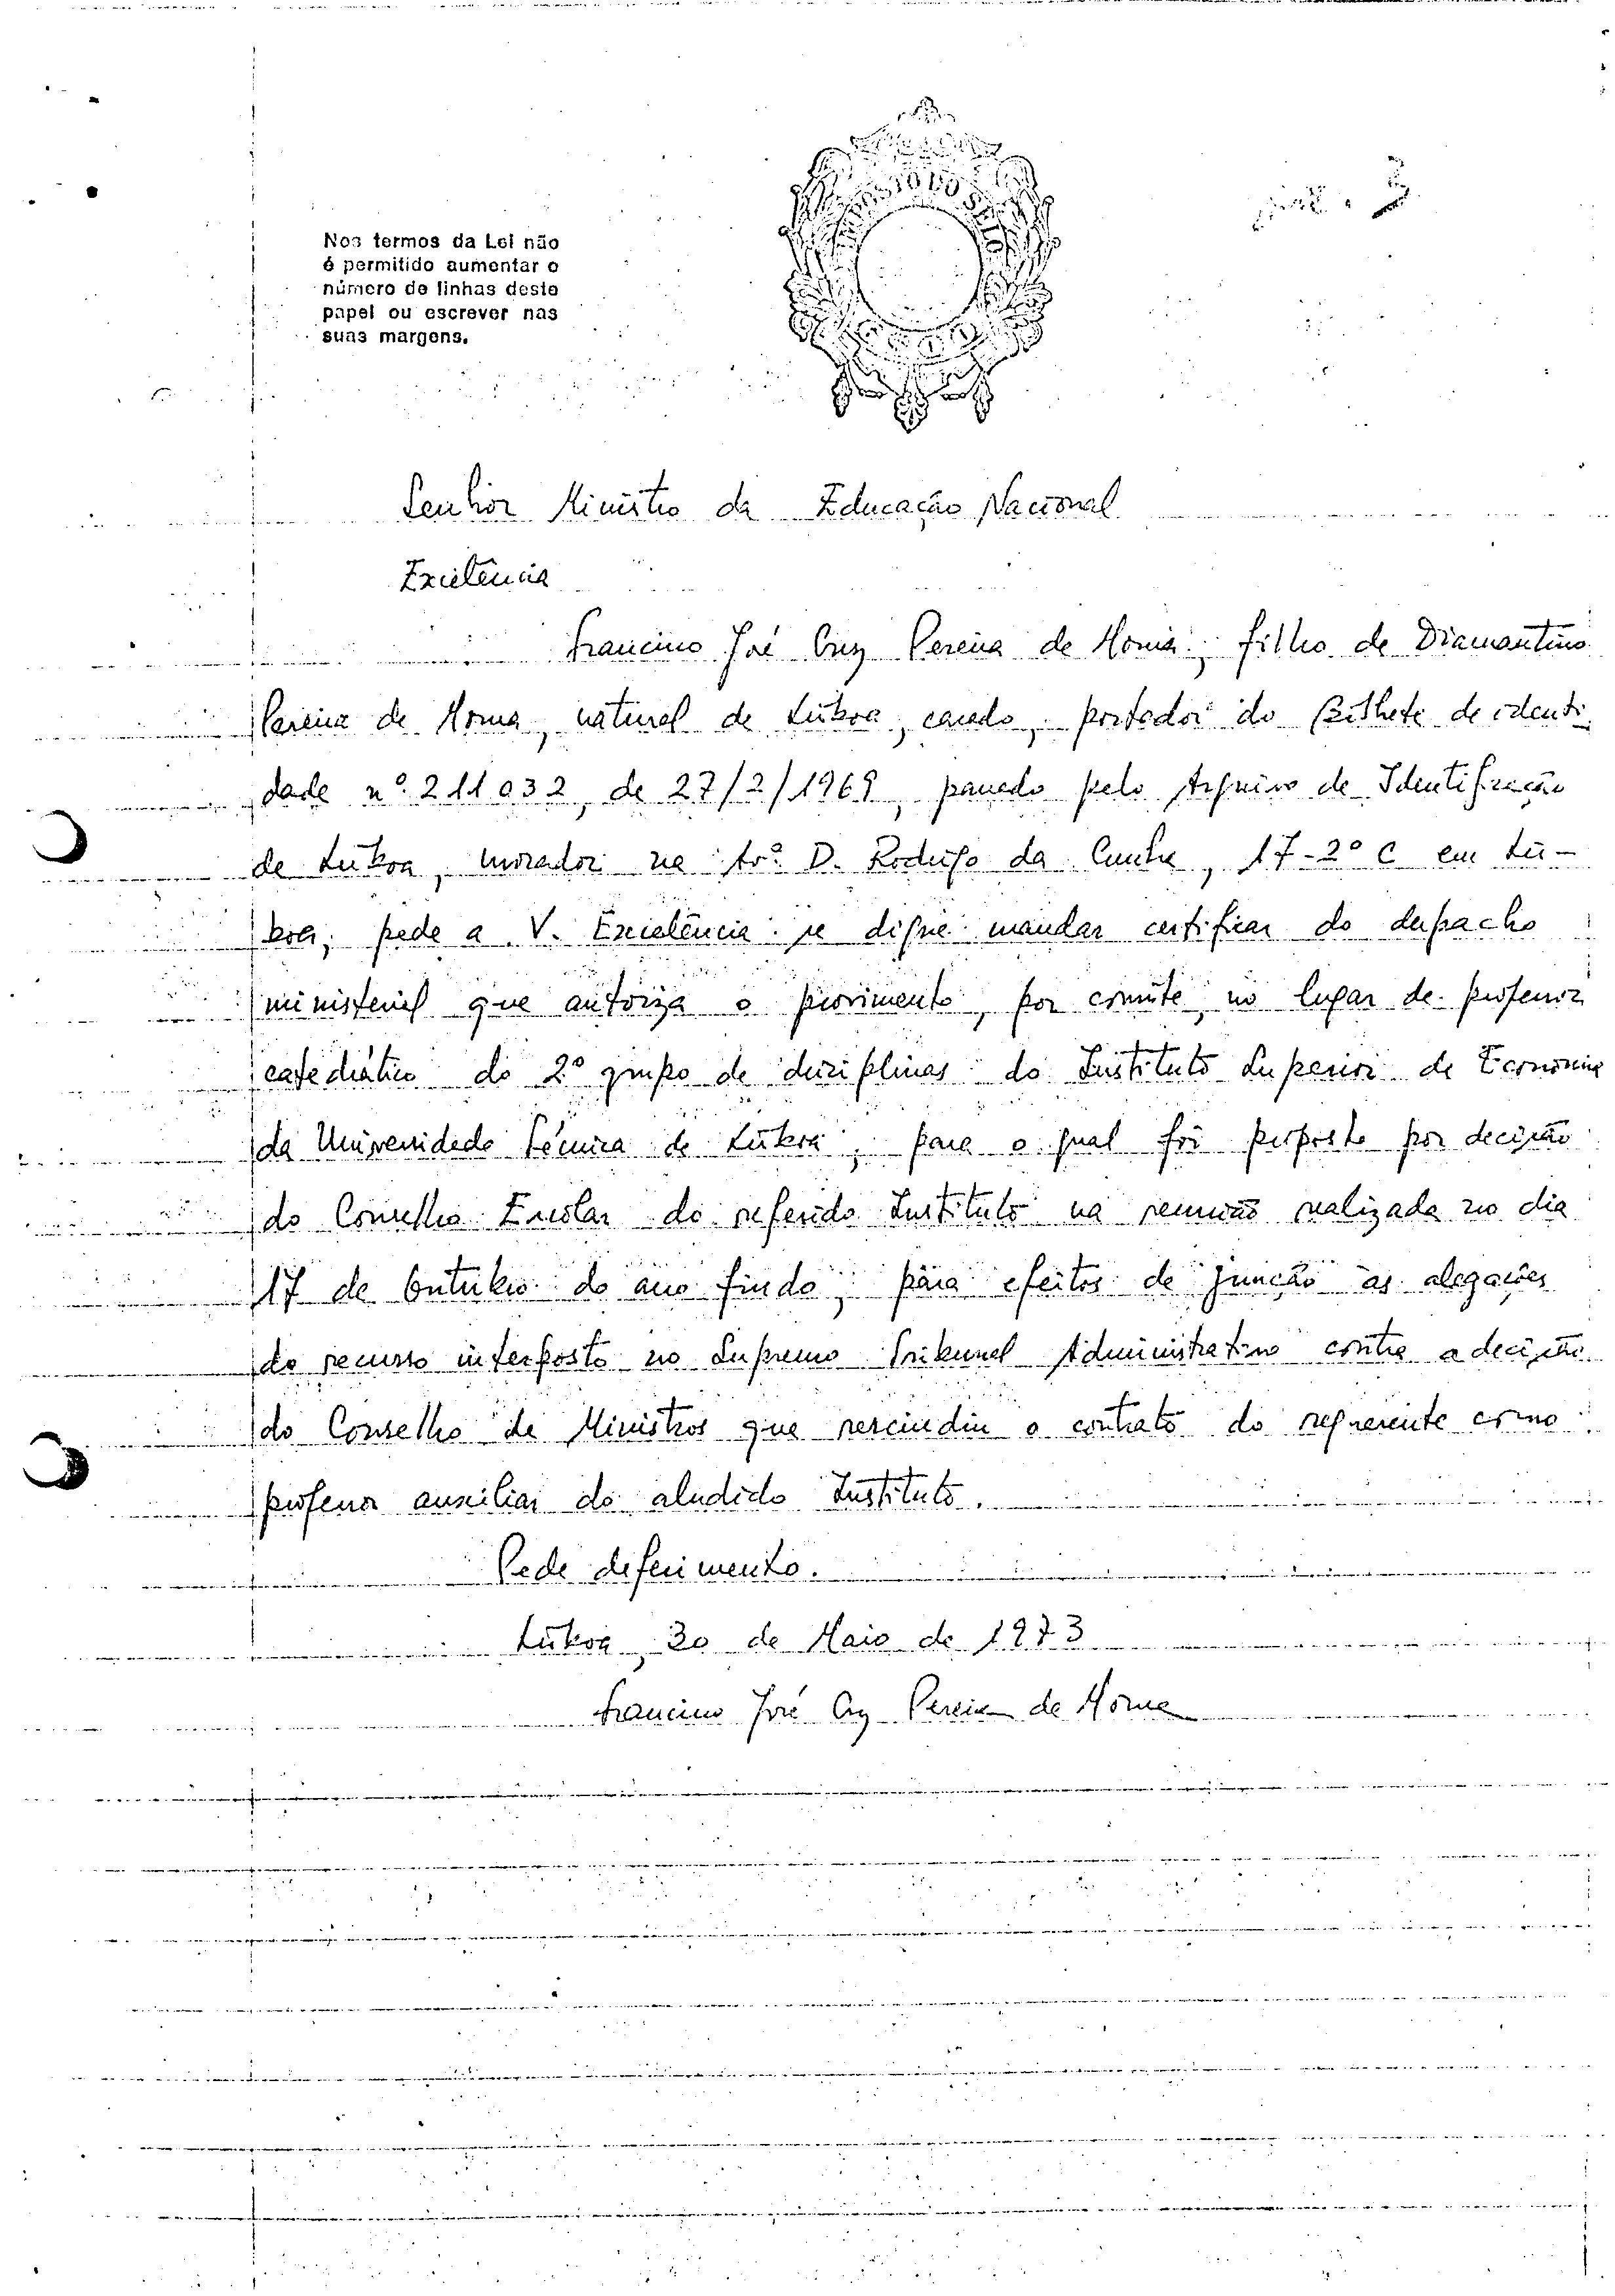 Nos termos da Lei não
é permitido aumentar o
número de linhas deste
papel ou escrever nas
suas margens.
Senhor Ministro da Educação Nacional
Excelência
Francisco José Cruz Pereira de Moura, filho de Diamantino
Pereira de Moura, natural de Lisboa, casado, portador do Bilhete de identi
dade nº 211032, de 27/2/1969, passado pelo Arquivo de Identificação
de Lisboa, morador na Avª D. Rodrigo da Cunha, 17-2º C em Lis-
boa, pede a V. Excelência se digne mandar certificar do despacho
ministerial que autoriza o provimento, por convite, no lugar de professor
catedrático do 2º grupo de disciplinas do Instituto Superior de Economia
da Universidade Técnica de Lisboa, para o qual foi proposto por decisão
do Conselho Escolar do referido Instituto na reunião realizada no dia
17 de Outubro do ano findo, para efeitos de junção às alegações
do recurso interposto no Supremo Tribunal Administrativo contra a decisão
do Conselho de Ministros que rescindiu o contrato do requerente como
professor auxiliar do aludido Instituto.
Pede deferimento.
Lisboa, 30 de Maio de 1973
Francisco José Cruz Pereira de Moura